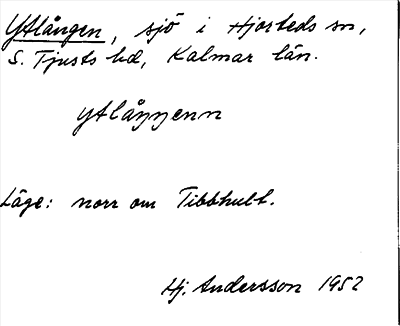 Ytlången, sjö i Hjorteds sn,
S. Tjusts hd, Kalmar län.
ytlåŋŋenn
Läge: norr om Tibbhult.
Hj. Andersson 1952